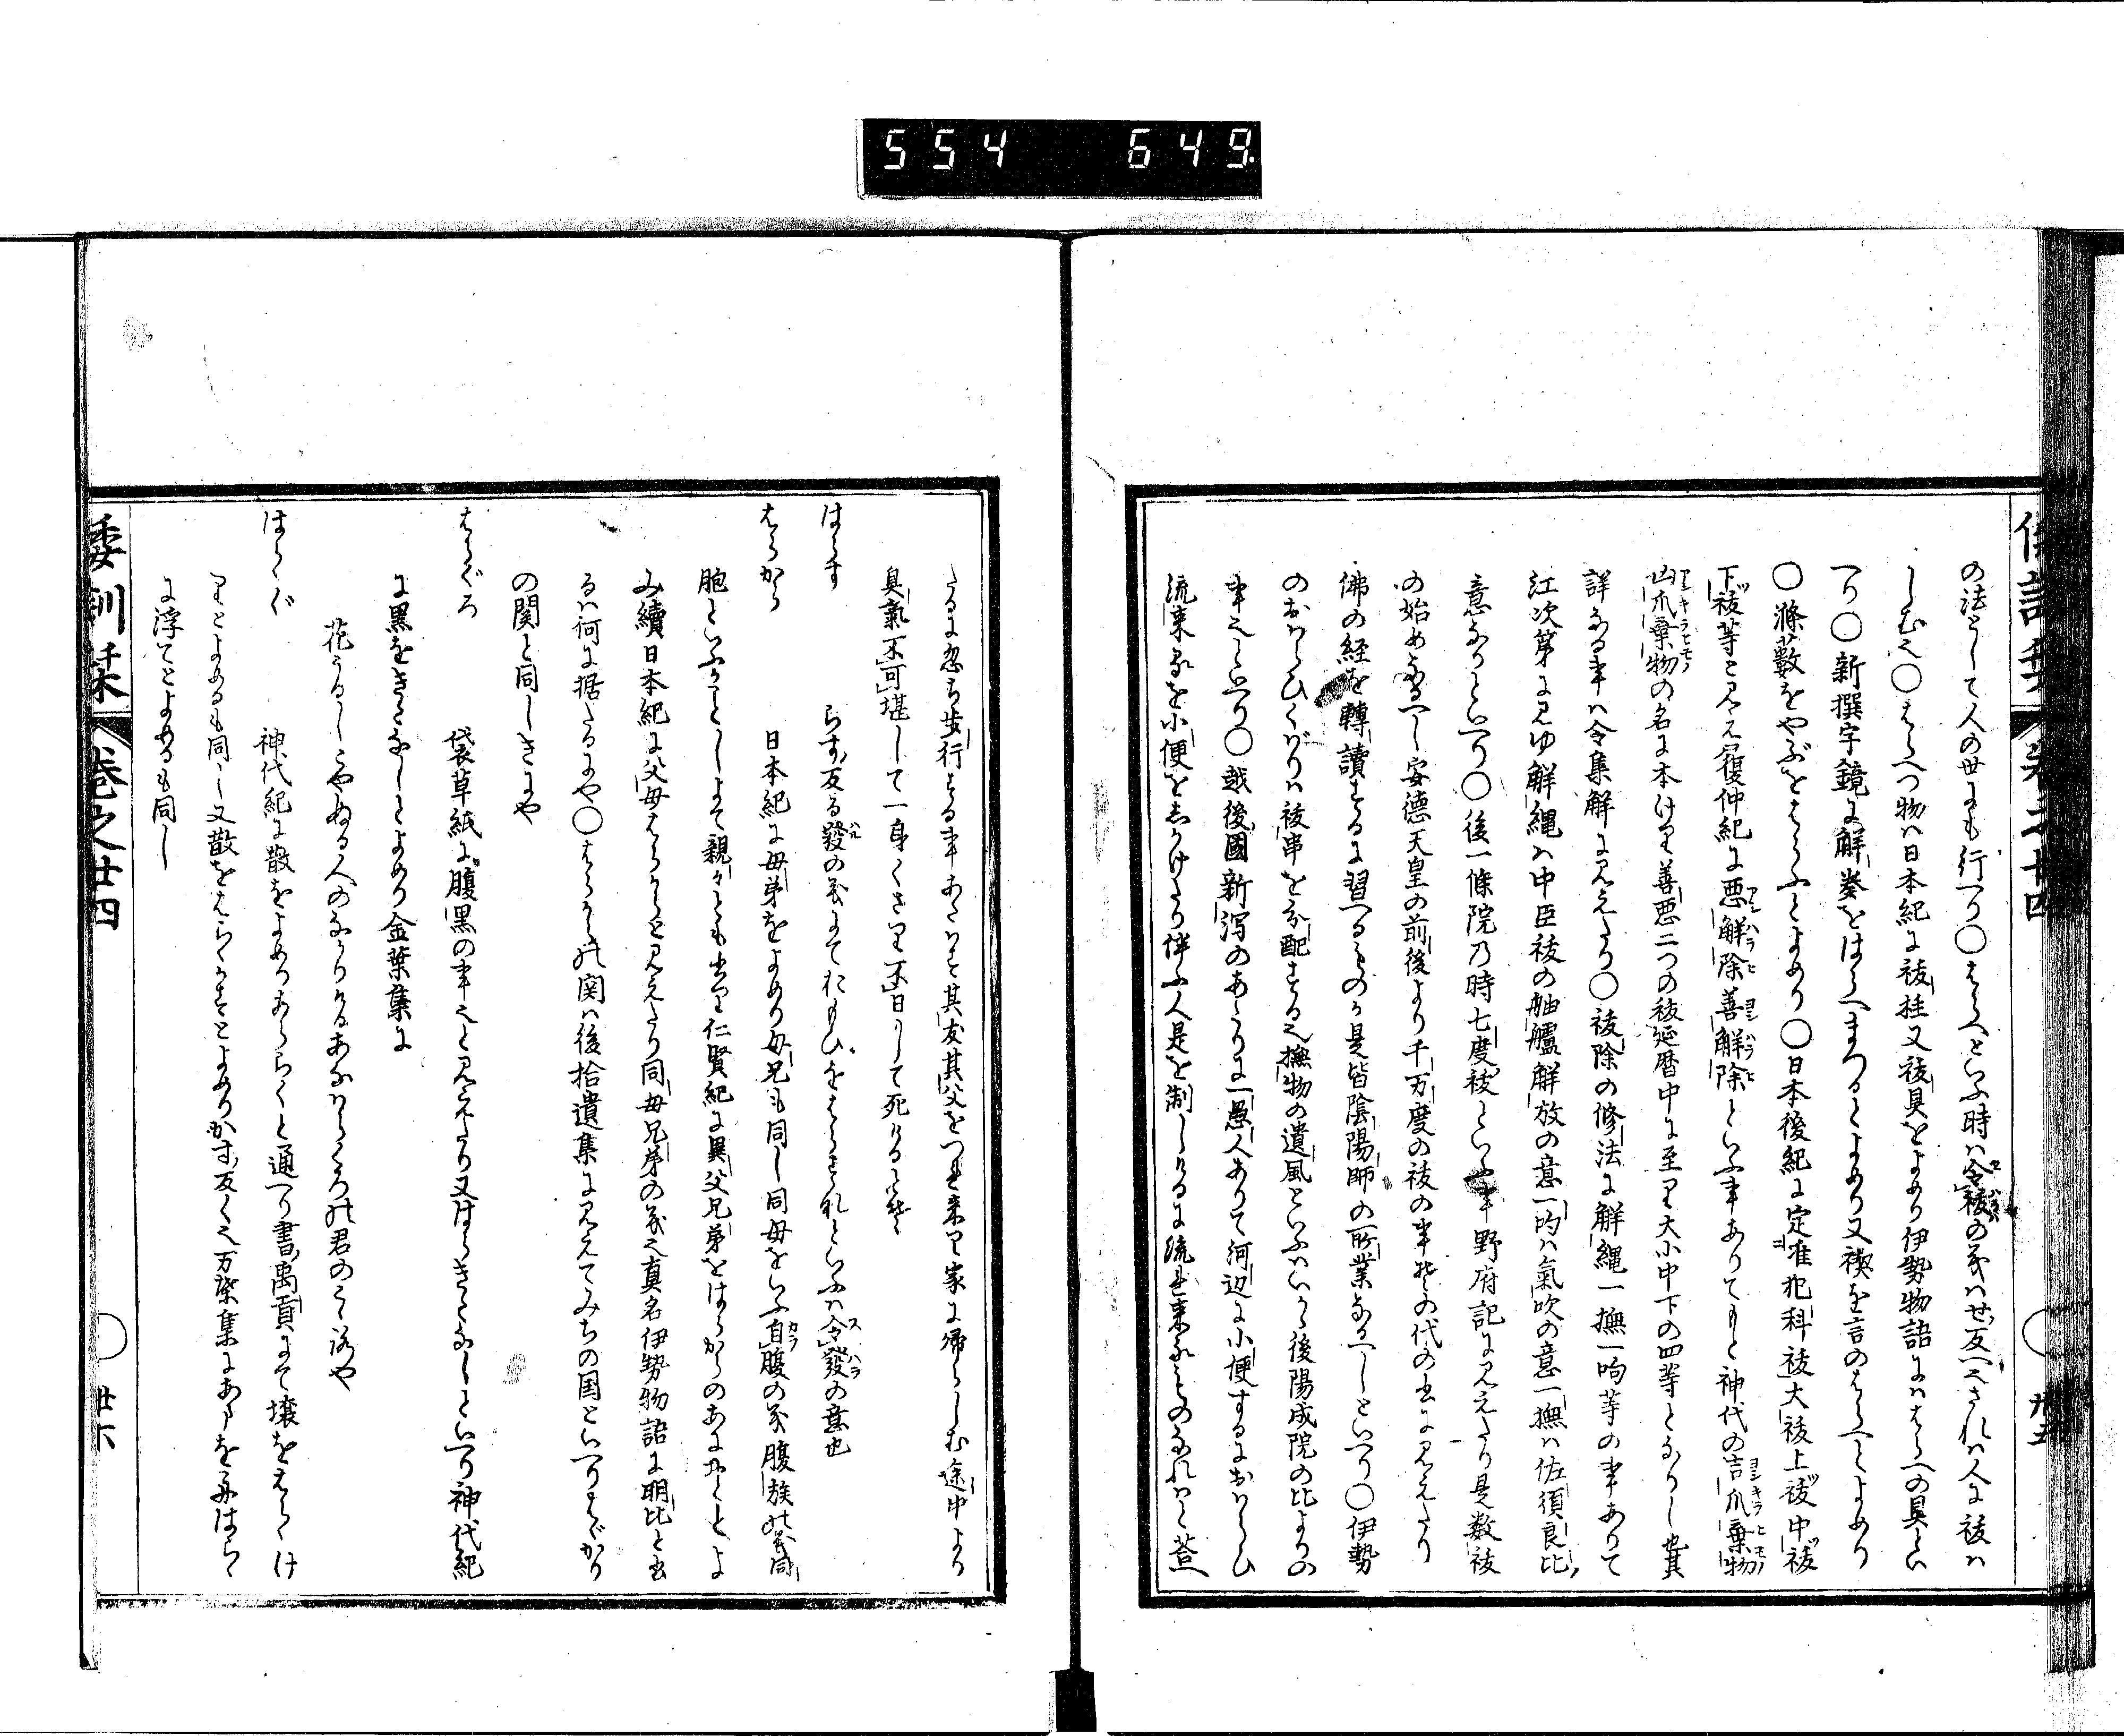 554 649
の法として人の世にも行へり○はらへといふ時ハ令祓の義ハせ反へ也されハ人に祓ハ
しむ也○はらへつ物ハ日本紀に祓柱又祓具をよめり伊勢物語にハはらへの具とい
へり○新撰字鏡に解奏をはらへまつるとよめり又禊を言のはらへとよめり
○滌藪をやぶをはらふとよめり○日本後紀に定准犯科祓大祓上祓中祓
下祓等と見え履仲紀に悪解除善解除といふ事ありてもと神代の吉爪棄物
凶爪棄物の名に本けり善悪二つの祓延暦中に至り大小中下の四等となりし也其
詳なる事ハ令集解に見えたり○祓除の修法に解縄一撫一吻等の事ありて
江次第に見ゆ解縄ハ中臣祓の舳艫解放の意一吻ハ氣吹の意一撫ハ佐須良比
意なりといへり○後一條院乃時七度祓といふ事野府記に見えたり是数祓
の始めなるへし安徳天皇の前後より千万度の祓の事其の代の書に見えたり
佛の経を轉讀するに習へるものか是皆陰陽師の所業なるへしといへり○伊勢
のおはらひくばりハ祓串を分配する也撫物の遺風といふハいかゝ後陽成院の比よりの
事也といへり○越後國新潟のあたりに一愚人ありて河辺に小便するにおはらひ
流来るを小便をしかけたり伴ふ人是を制しけるに流れ来るものなれハと荅へ
たるに忽ち歩行する事あたはす其友其父をつれ来り家に帰らしむ途中より
臭氣不可堪して一身くさり不日して死けるとそ
はらす　らす反る發の義にておもひをはらすなといふハ令發の意也
はらから　日本紀に母弟をよめり母兄も同し同母をいふ自腹の義腹族の義同
胞といふかことしよて親々とも書り仁賢紀に異父兄弟をはらからのあにおとゝとよ
み續日本紀に父母はらからと見えたり同母兄弟の義也真名伊勢物語に明比と書
るハ何に据たるにや○はらからの関ハ後拾遺集に見えてみちの国といへりはゞかり
の関と同しきにや
はらぐろ　袋草紙に腹黒の事也と見えたり又はらきたなしといへり神代紀
に黒をきたなしとよめり金葉集に
花うるしこやぬる人のなかりけるあなはらくろの君のこゝろや
はらゝぐ　神代紀に散をよめりあらゝくと通へり書禹貢にて壤をはらゝけ
りとよめるも同し又散をはらゝかすとよめりかす反く也万葉集にあまを舟はらゝ
に浮てとよめるも同し
倭訓栞　巻之廿四　廿六